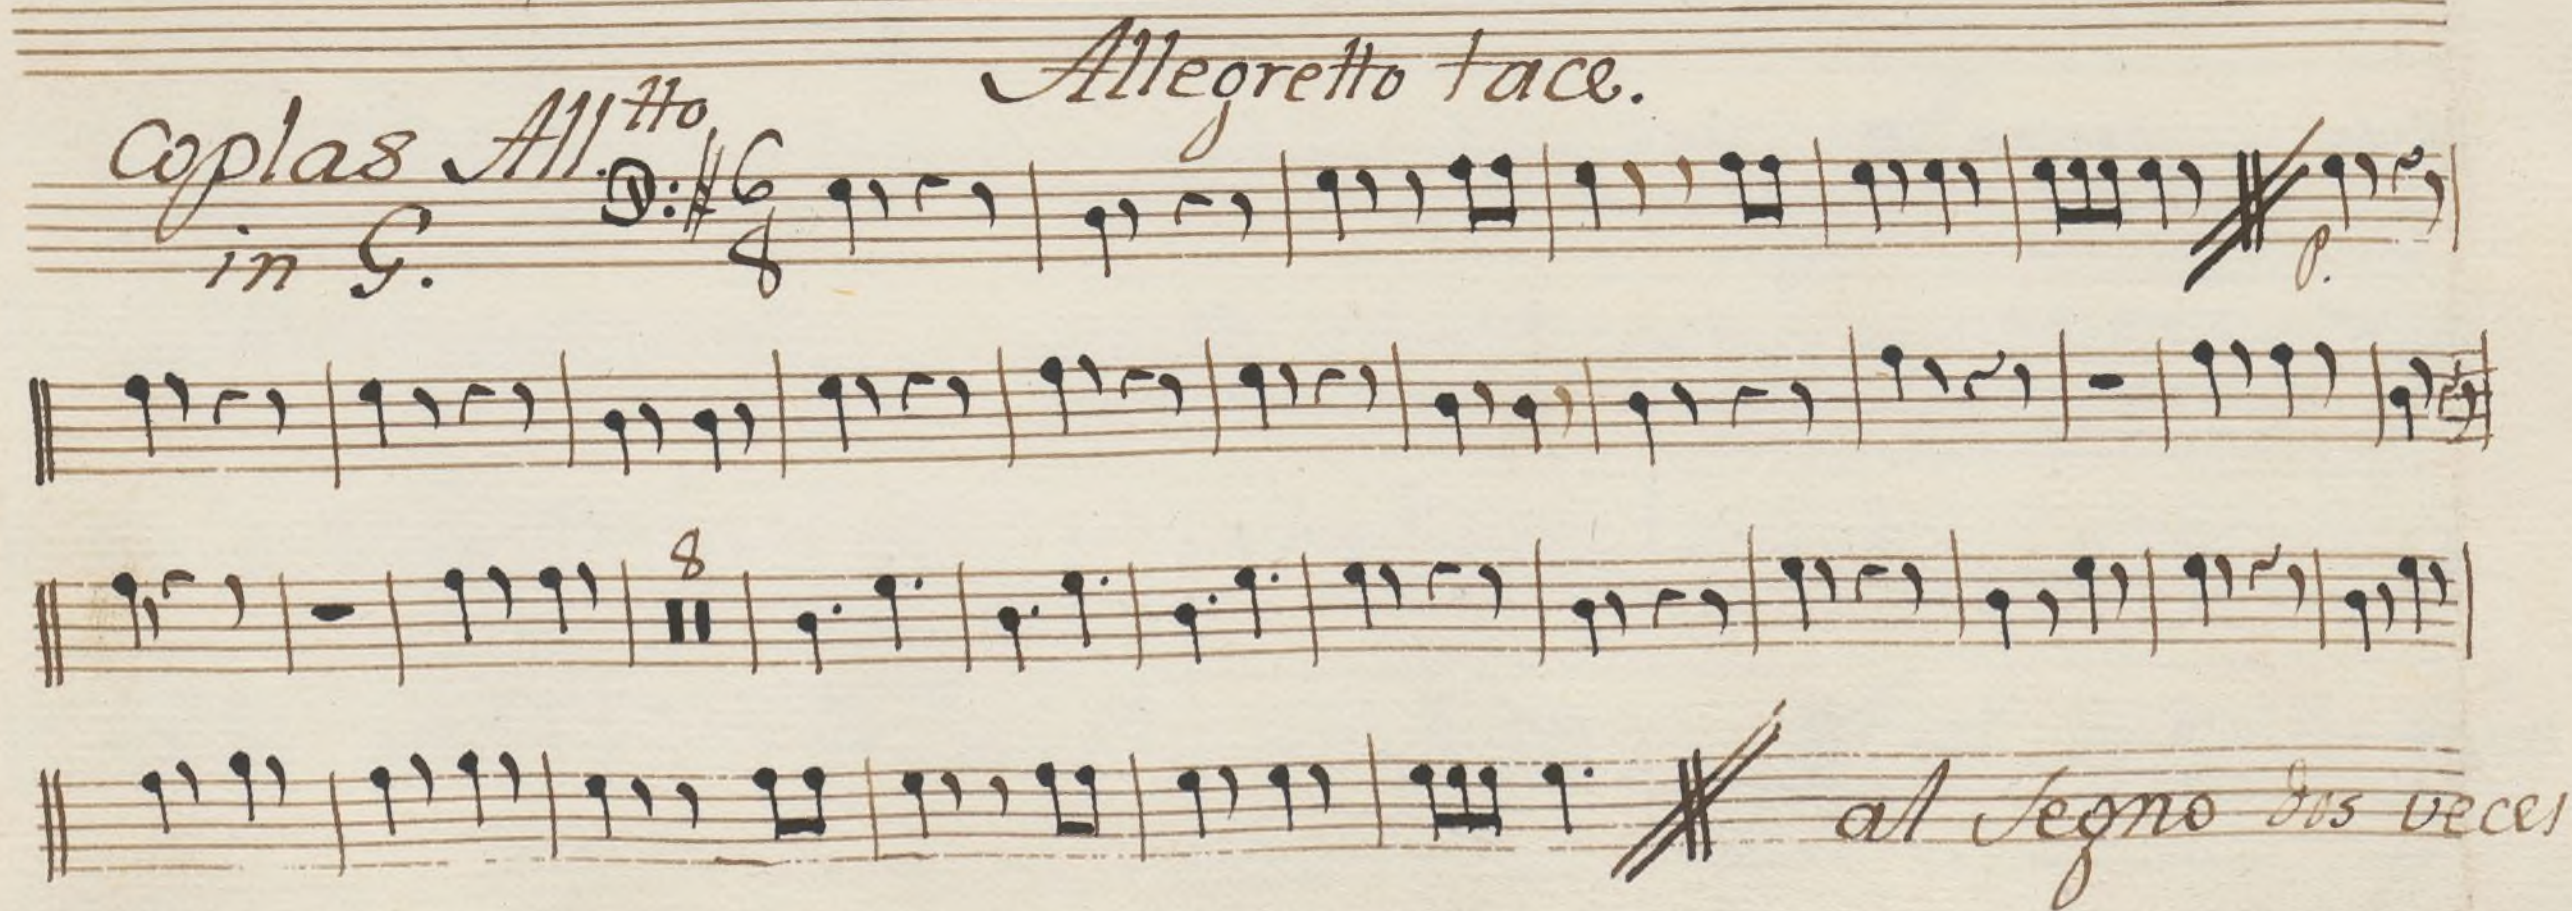 Allegretto tace.
Coplas All.tto
in G.
6
8
p.
8
al Segno dos veces